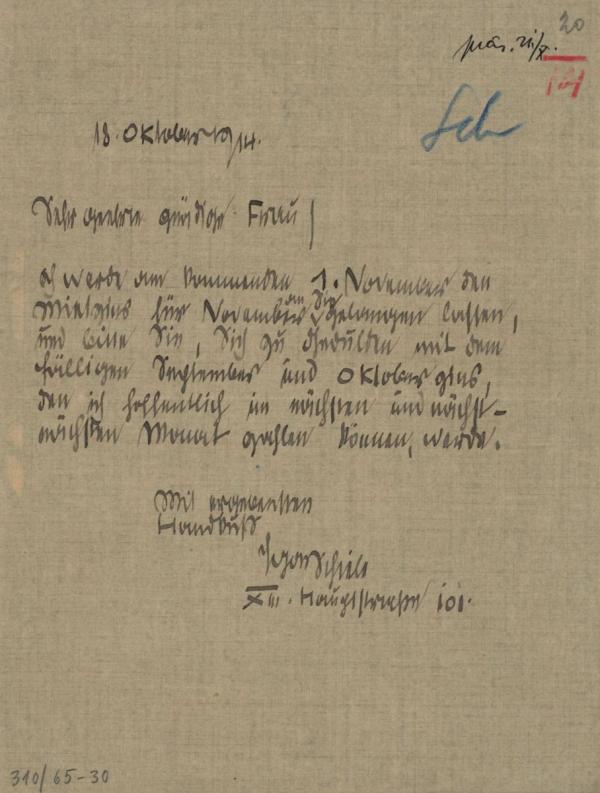 20
präs. 21/X.
Sch
18. Oktober 1914.
Sehr geehrte gnädige Frau!
ich werde am kommenden 1. November den
Mietzins für November an Sie gelangen lassen,
und bitte Sie, Sich zu gedulden mit dem
fälligen September und Oktober zins,
den ich hoffentlich im nächsten und nächst-
nächsten Monat zahlen können, werde.
Mit ergebensten
Handkuß
Egon Schiele
XIII. Hauptstraße 101.
310/65-30